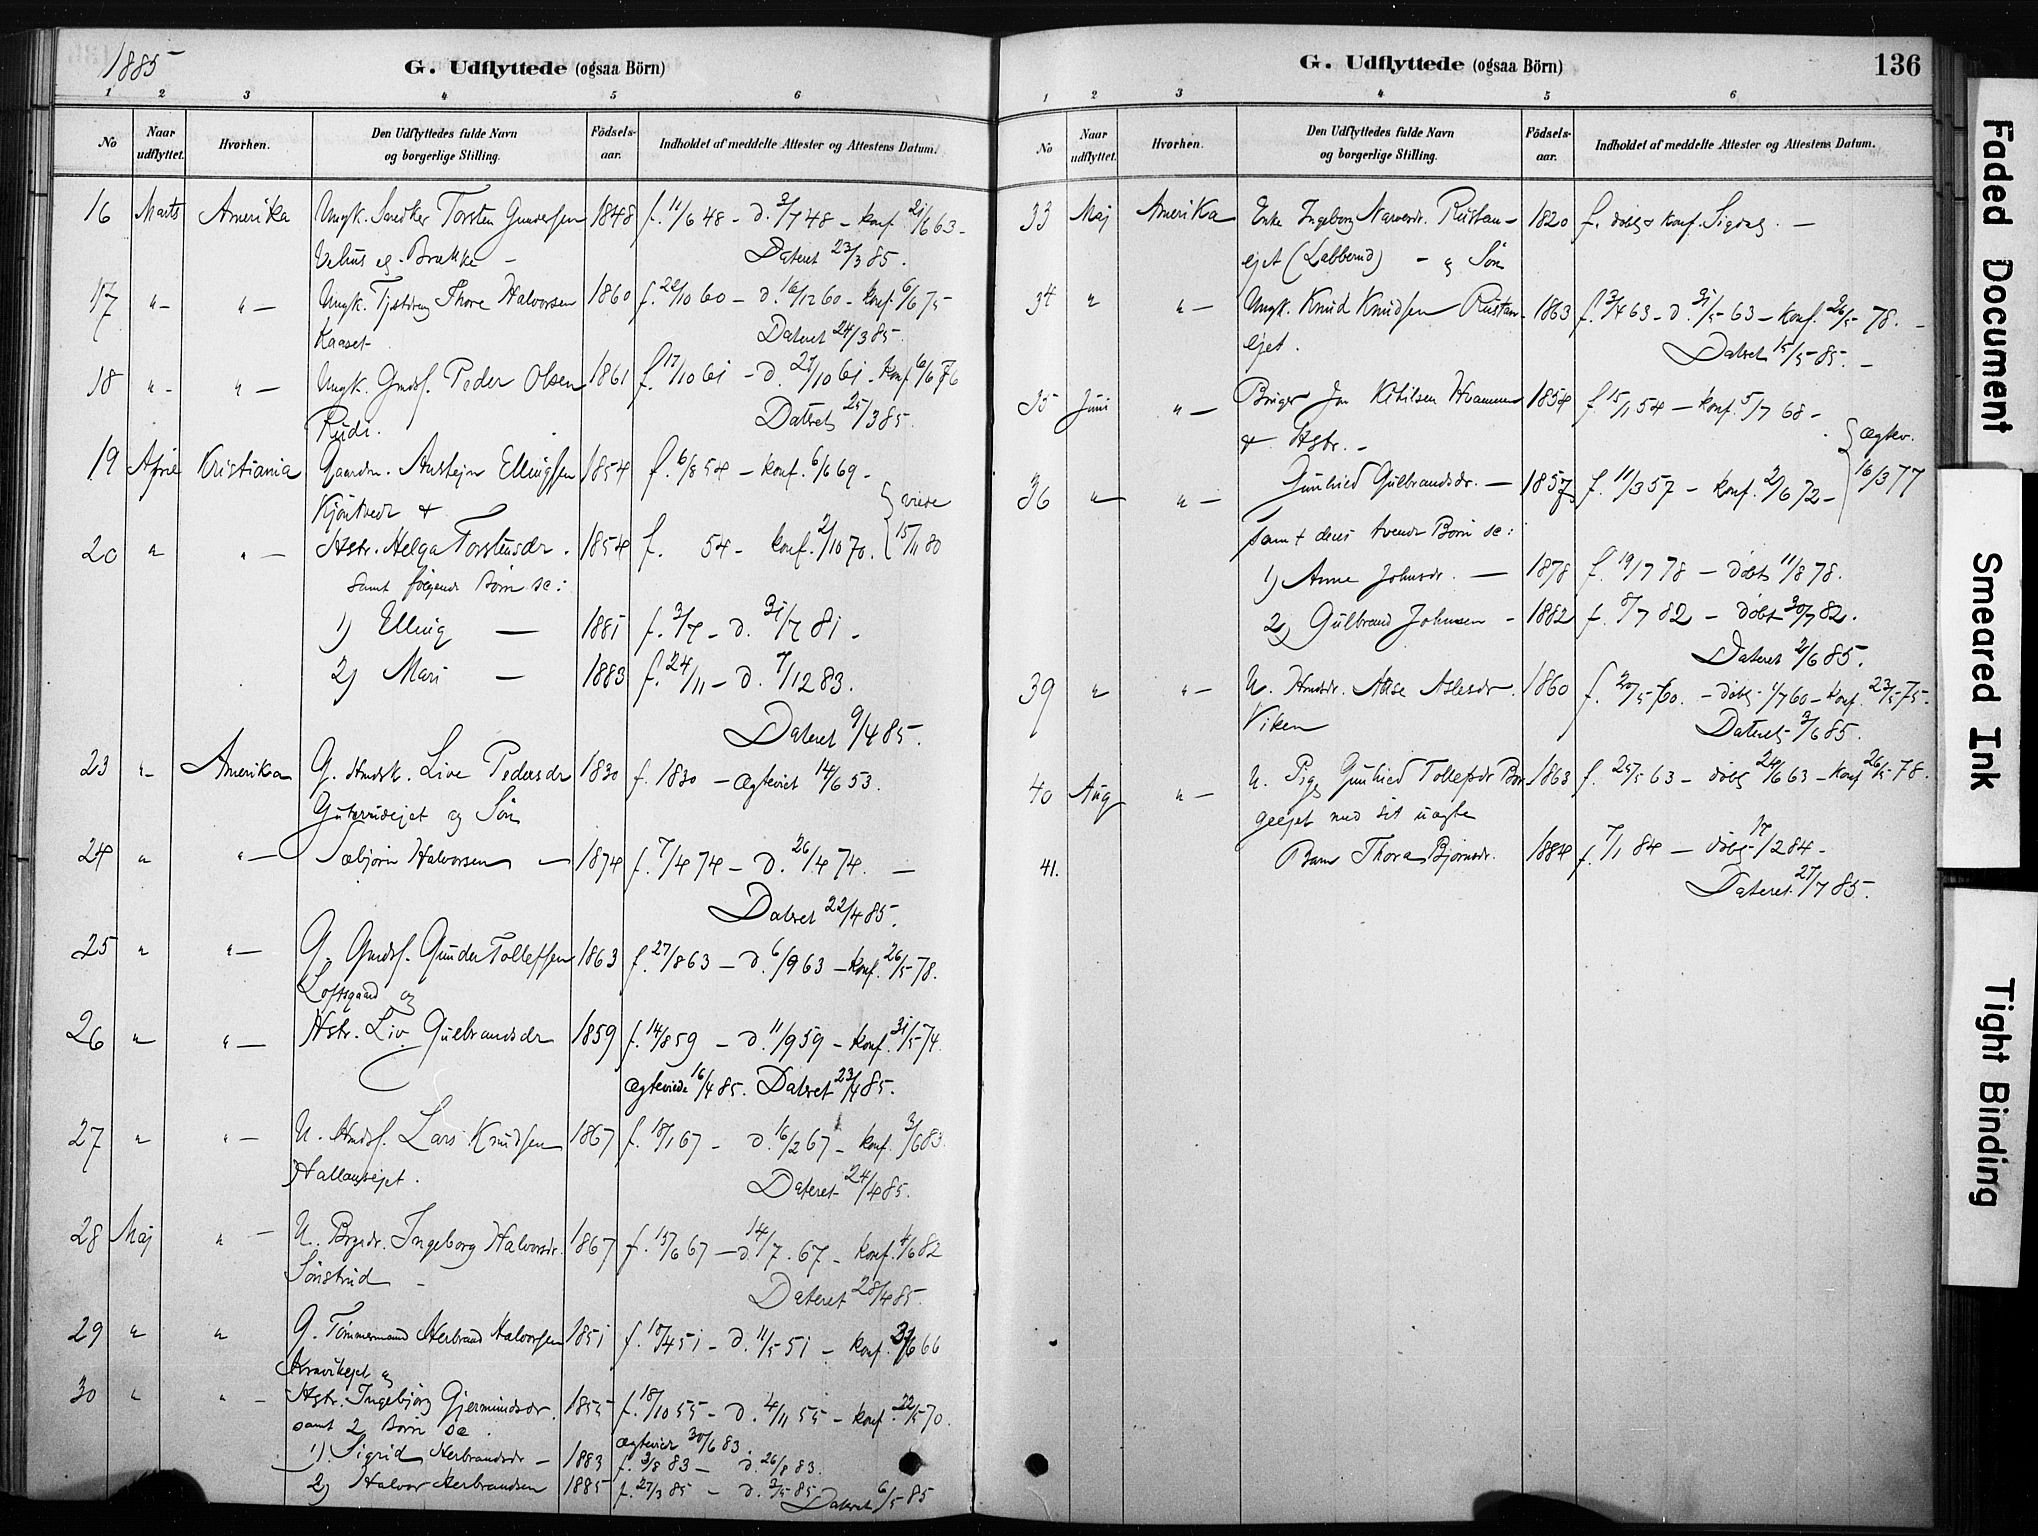 1885
G. Udflyttede (ogsaa Börn)
1 2 3 4 5 6
No Naar udflyttet. Hvorhen. Den Udflyttedes fulde Navn og borgerlige Stilling. Födsels-aar. Indholdet af meddelte Attester og Attestens Datum.
16 Marts Amerika Ungk. Snedker Torsten Gundersen 1848 f. 11/6 48 – d. 2/7 48 – konf. 21/6 63 –
Brække – Dateret 23/3 85.
17 " – " – Ungk. Thore Halvorsen 1860 f. 22/10 60 – d. 16/12 60 – konf. 6/6 75
Kaaset Dateret 24/3 85.
18 " – " – Ungk. Gmdsf. Peder Olsen 1861 f. 17/10 61 – d. 27/10 61 – konf. 6/6 76
Rudi. Dateret 25/3 85.
19 April Kristiania Gaardm. Anstejn Ellingsen 1854 f. 6/8 54 – konf. 6/6 69 –
Kjöntvedt & viede
20 " " – Hstr. Helga Torstensdr. 1854 f. 54 – konf. 2/10 70. 15/11 80
samt følgende Børn se:
1) Elling — 1881 f. 3/7 – d. 31/7 81 –
2) Mari — 1883 f. 24/11 – d. 7/12 83.
Dateret 9/4 85.
23 " – Amerika G. Live Pedersdr 1830 f. 1830 – Ægteviet 14/6 53.
og Søn
24 " " – Sæbjørn Halvorsen — 1874 f. 7/4 74 – d. 26/4 74. —
Dateret 22/4 85.
25 " " – G. Gmdsf. Gunder Tollefsen 1863 f. 27/8 63 – d. 6/9 63 – konf. 26/5 78.
Loftsgaard og
26 " " – Hstr. Liv Gulbrandsdr 1859 f. 14/8 59 – d. 11/9 59 – konf. 31/5 74.
Ægteviede 16/4 85. Dateret 23/4 85.
27 " " – U. Hmdsf. Lars Knudsen 1867 f. 18/1 67 – d. 16/2 67 – konf. 3/6 83.
Hallansejet. Dateret 24/4 85.
28 Maj " – U. Ingeborg Halvorsdr. 1867 f. 15/6 67 – d. 14/7. 67 – konf. 4/6 82
Sönstrud – Dateret 28/4 85.
29 " " G. Tömmermand Herbrand Halvorsen 1851 f. 18/4 51 – d. 11/5 51 – konf. 66
Kravikejet og
30 " " – Hstr. Ingebjörg Gjermundsdr. 1855 f. 18/10 55 – d. 4/11 55 – konf. 22/5 70.
samt 2 Børn se Ægteviet 30/6 83
1) Sigrid Herbrandsdr – 1883 f. 3/8 83 – d. 26/8 83.
2) Halvor Herbrandsen 1885 f. 27/3 85 – d. 3/5 85 Dateret 6/5 85
G. Udflyttede (ogsaa Börn) 136
1 2 3 4 5 6
No Naar udflyttet. Hvorhen. Den Udflyttedes fulde Navn og borgerlige Stilling. Födsels-aar. Indholdet af meddelte Attester og Attestens Datum.
33 Maj Amerika Enke Ingeborg Narvesdr. Rustan- 1820 f. döbt & konf. Sigdal. —
ejet (Labberud) – og Søn
34 " " – Ungk. Knud Knudsen Rustan- 1863 f. 3/4 63 – d. 31/5 63 – konf. 26/5 78. –
ejet. Dateret 15/5 85. –
35 Juni " – Jon Kittilsen Hvammen 1854 f. 15/1 54 – konf. 5/7 68 –
& Hstr. – Ægtev.
36 " – " – Gunhild Gulbrandsdr. — 1857 f. 11/3 57 – konf. 2/6 72 – 16/3 77
samt deres tvende Børn se:
1) Anne Johnsdr. — 1878 f. 19/7 78 – döbt 11/8 78.
2) Gulbrand Johnsen – 1882 f. 8/7 82 – döbt 30/7 82.
Dateret 2/6 85.
39 " " – U. Aslesdr. 1860 f. 20/5 60. – döbt 1/7 60 – konf. 23/5 75.
Viken Dateret 3/6 85.
40 Aug " – U. Pige Gunhild Tollefsdr Bor 1863 f. 25/5 63 – döbt 24/6 63 – konf 26/5 78.
geejet med sit uægte
41. Barn Thora Bjørnsdr. 1884 f. 7/1 84 – döbt 17/2 84 –
Dateret 27/7 85.
Faded Document
Smeared Ink
Tight Binding